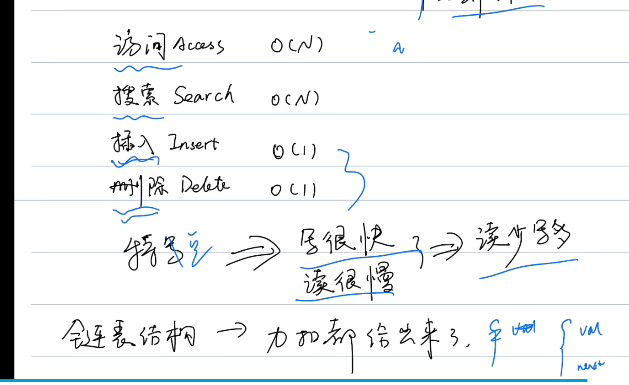 访问 Access O(N)
搜索 Search O(N)
插入 Insert O(1)
删除 Delete O(1)
特点 ⟹ 写很快 ⟹ 读少写多
读很慢
链表结构 → 力扣都给出来了. val
next